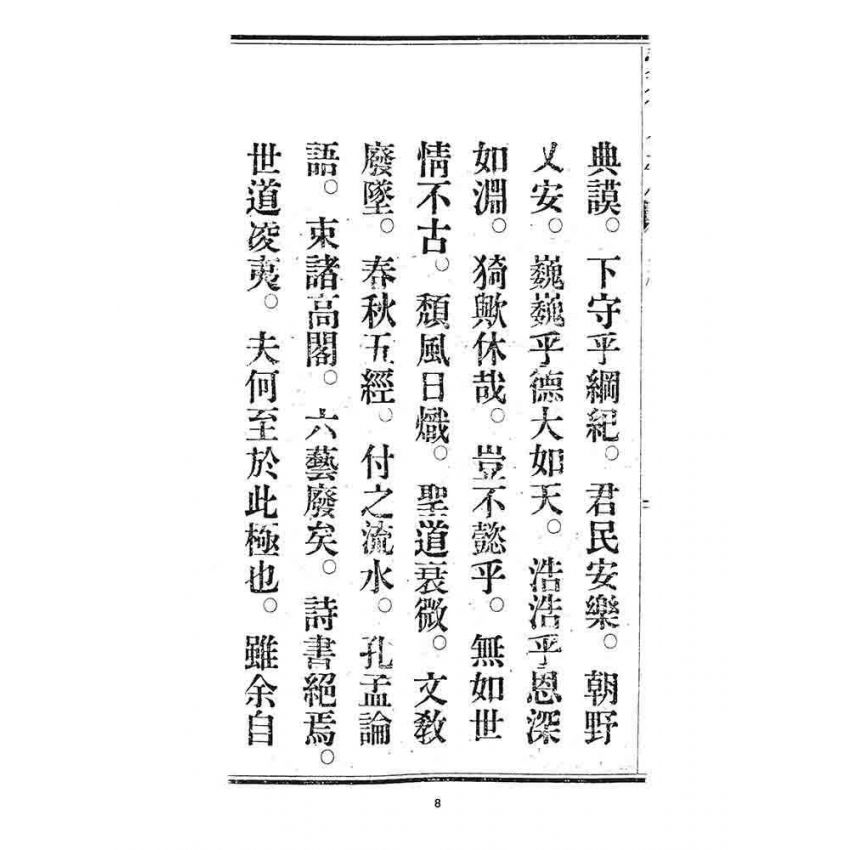 典謨。下守乎綱紀。君民安樂。朝野
乂安。巍巍乎德大如天。浩浩乎恩深
如淵。猗歟休哉。豈不懿乎。無如世
情不古。頹風日熾。聖道衰微。文教
廢墜。春秋五經。付之流水。孔孟論
語。束諸高閣。六藝廢矣。詩書絕焉。
世道凌夷。夫何至於此極也。雖余自
8